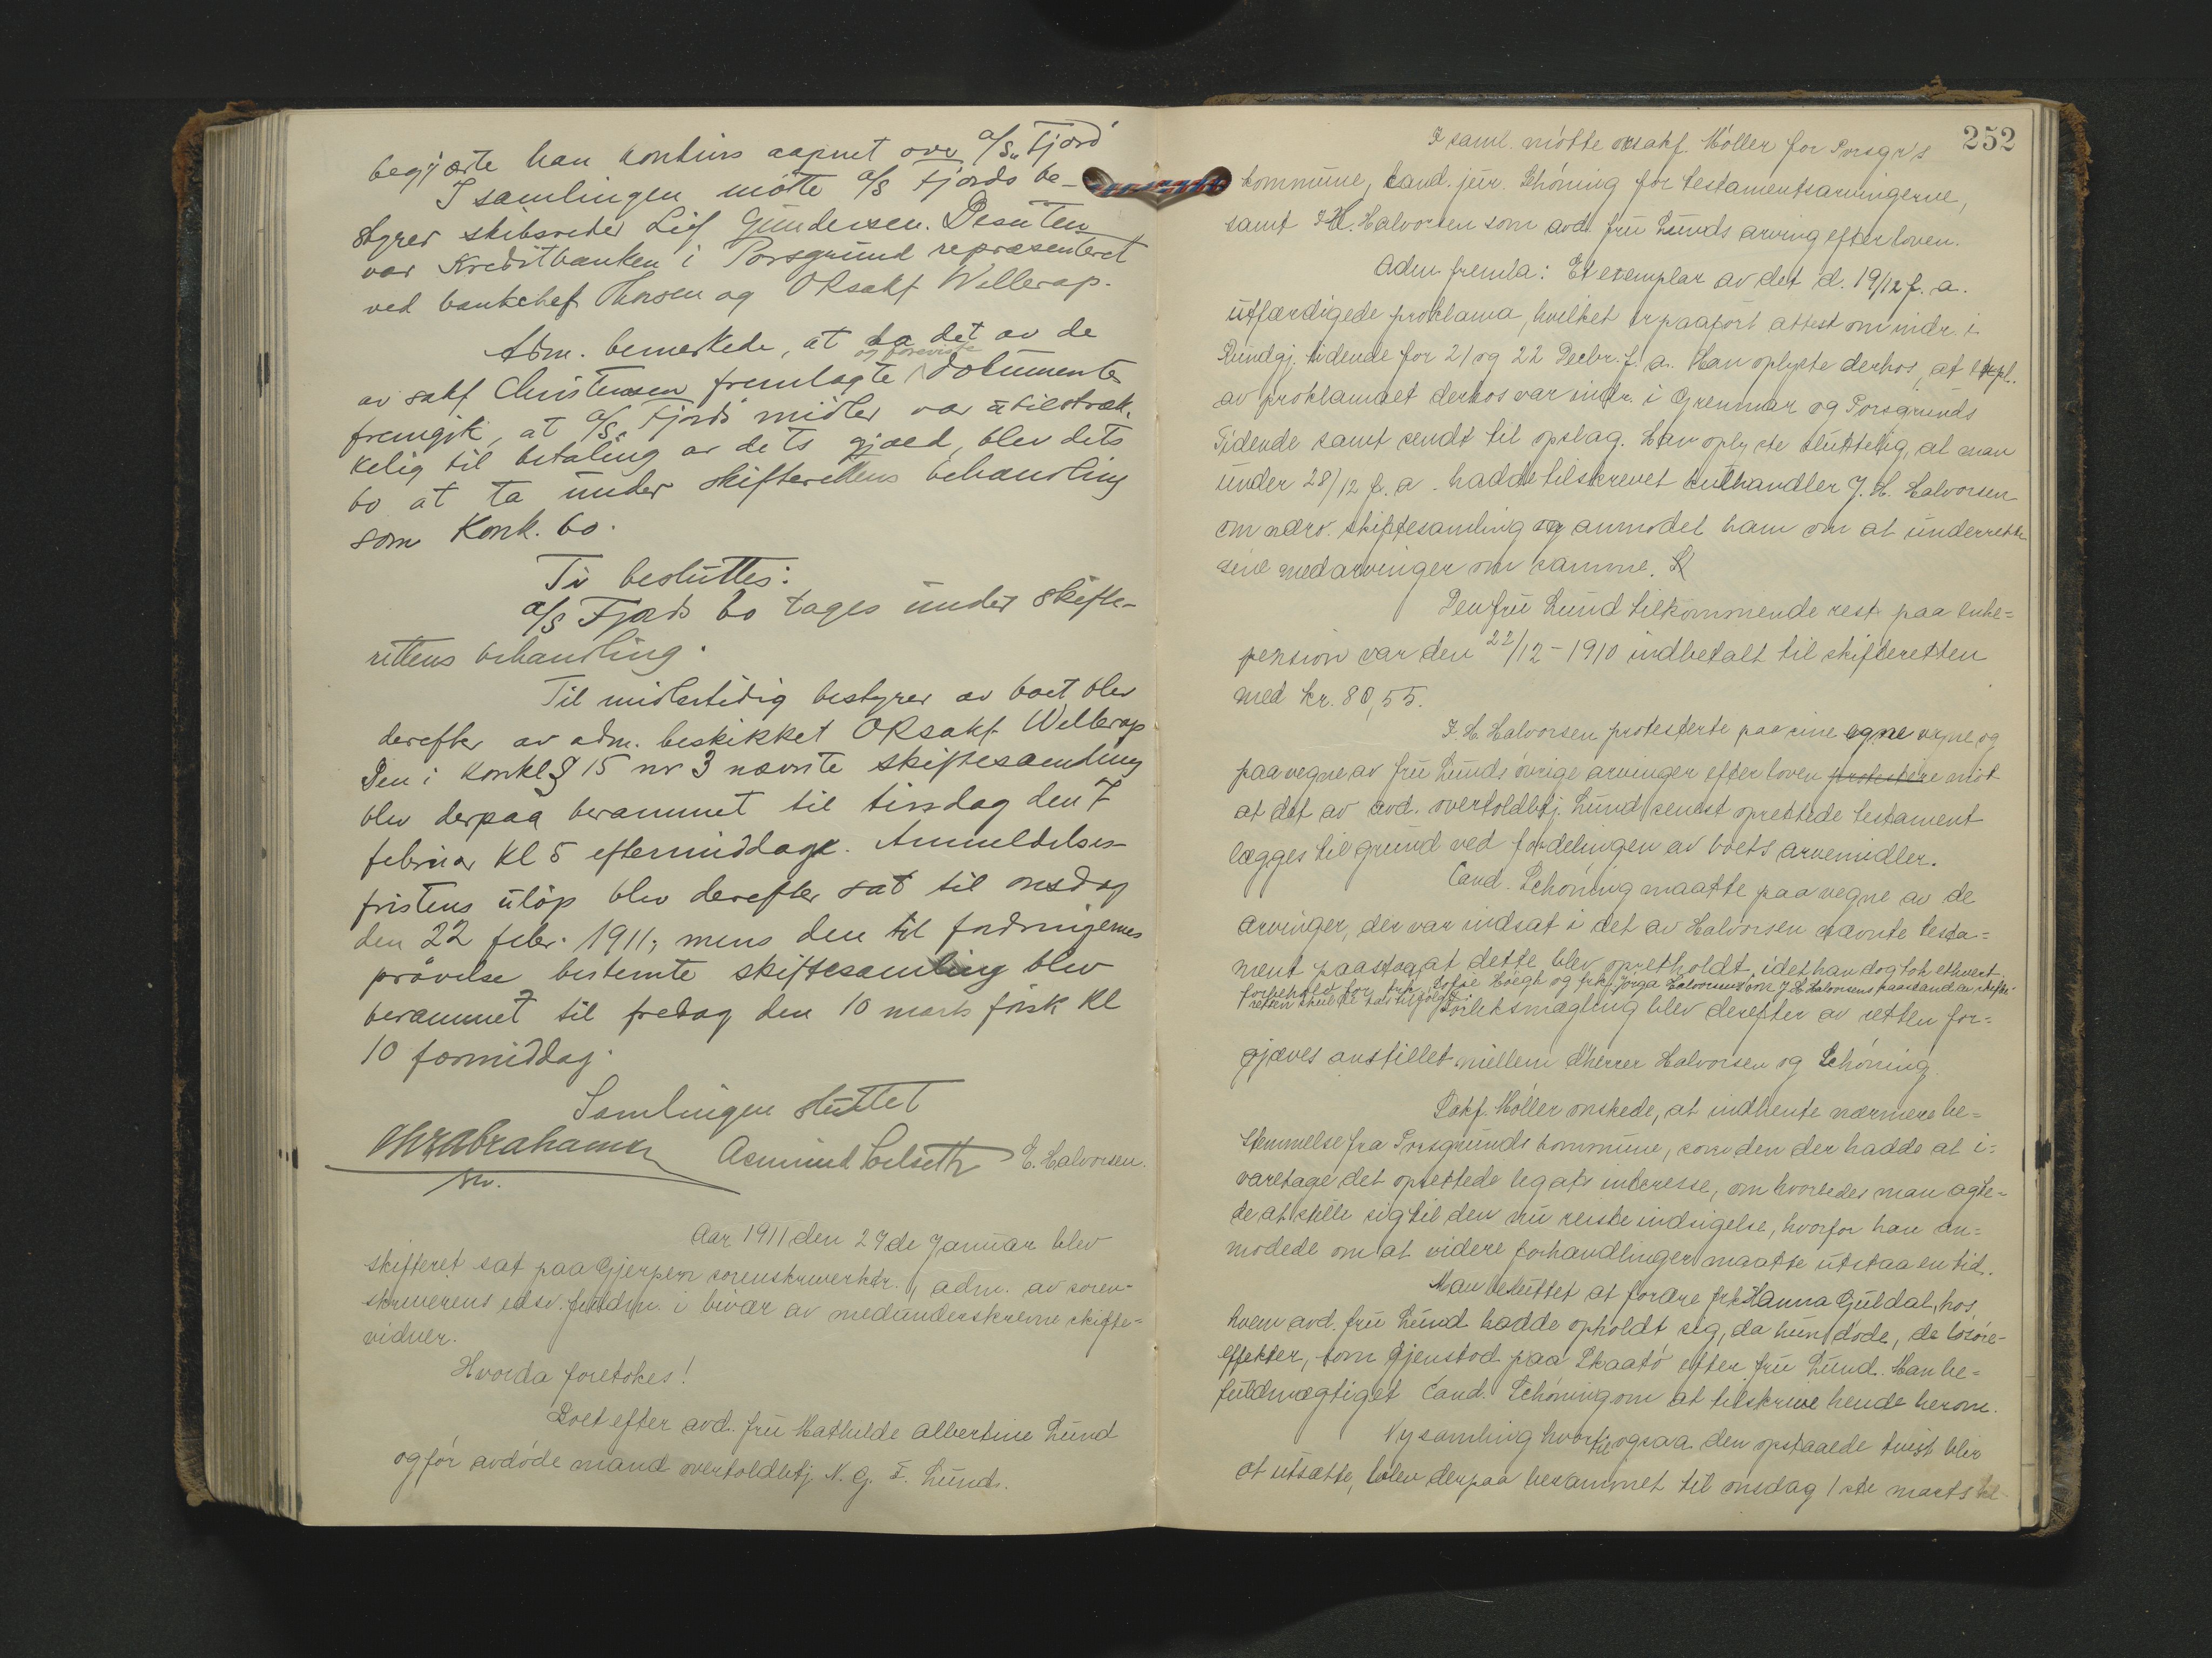 begjærte han konkurs aapnet over a/s „Fjord"
I samlingen møtte a/s Fjords be-
styrer skibsreder Leif Gundersen. Desuten
var Kreditbanken i Porsgrund repræsenteret
ved bankchef Hansen og ORsakf Wellerop.
Adm. bemerkede, at da det av de
av sakf Christensen fremlagte og foreviste dokumenter
fremgik, at a/s „Fjords" midler var utilstræk-
kelig til betaling av dets gjæld, blev dets
bo at ta under skifterettens behandling
som Konk. bo.
Ti besluttes:
a/s Fjords bo tages under skifte-
rettens behandling.
Til midlertidig bestyrer av boet blev
derefter av adm. beskikket ORsakf Wellerop
Den i konkl § 15 nr 3 nævnte skiftesamling
blev derpaa berammet til tirsdag den 7
februar Kl 5 eftermiddag. Anmeldelses-
fristens utløp blev derefter sat til onsdag
den 22 febr. 1911, mens den til fordringernes
prøvelse bestemte skiftesamling blev
berammet til fredag den 10 marts førsk Kl
10 formiddag.
Samlingen sluttet
Chr Abrahamsen Asmund Solseth E. Halvorsen.
Aar 1911 den 27de Januar blev
skifteret sat paa Gjerpen sorenskriverktr., adm. av soren-
skriverens edsv. fuldm. i bivær av medunderskrevne skifte-
vidner.
Hvorda foretokes!
Boet efter avd. fru Mathilde Albertine Lund
og før avdøde mand overtoldbtj N. G. F. Lund.
252
I saml. møtte orsakf. Møller for Porsgr's
kommune, Cand. jur. Schøning for testamentsarvingerne,
samt J. H. Halvorsen som avd. fru Lunds arving efter loven.
Adm. fremla: Et exemplar av det d. 19/12 f. a.
utfærdigede proklama, hvilket er paaført attest om indr. i
Kundgj. tidende for 21 og 22 Decbr. f. a. Han oplyste derhos, at 1 expl.
av proklamaet derhos var indr. i Grenmar og Porsgrunds
Tidende samt sendt til opslag. Han oplyste sluttelig, at man
under 28/12 f. a. hadde tilskrevet kulhandler J. H. Halvorsen
om nærv. skiftesamling og anmodet ham om at underrette
sine medarvinger om samme.
Den fru Lund tilkommende rest paa enke=
pension var den 22/12 - 1910 indbetalt til skifteretten
med kr. 80,55.
J. H. Halvorsen protesterte paa sine egne vegne og
paa vegne av fru Lunds øvrige arvinger efter loven protestere mot
at det av avd. overtoldbtj. Lund senest oprettede testament
lægges til grund ved fordelingen av boets arvemidler.
Cand. Schøning maatte paa vegne av de
arvinger, der var indsat i det av Halvorsen nævnte testa=
ment paastaa, at dette blev opretholdt, idet han dog tok ethvert
forbehold for frk. Sofie Høegh og frk. Jørga Halvorsen om J. H. Halvorsens paastand av skifte-
retten skulde tas tilfølge.
Forliksmægling blev derefter av retten for=
gjæves anstillet mellem dherrer Halvorsen og Schøning.
Sakf. Møller ønskede, at indhente nærmere be=
stemmelse fra Porsgrunds kommune, som den der hadde at i=
varetage det oprettede legats interesse, om hvorledes man agte=
de at stille sig til den nu reiste indsigelse, hvorfor han an=
modede om at videre forhandlinger maatte utstaa en tid.
Man besluttet at fordre frk Hanna Guldal, hos
hvem avd. fru Lund hadde opholdt sig, da hun døde, de løsøre-
effekter, som gjenstod paa Skaatø efter fru Lund. Man be=
fuldmægtiget Cand. Schøning om at tilskrive hende herom.
Ny samling hvortil ogsaa den opstaaede tvist blir
at utsætte, blev derpaa berammet til onsdag 1ste marts kl